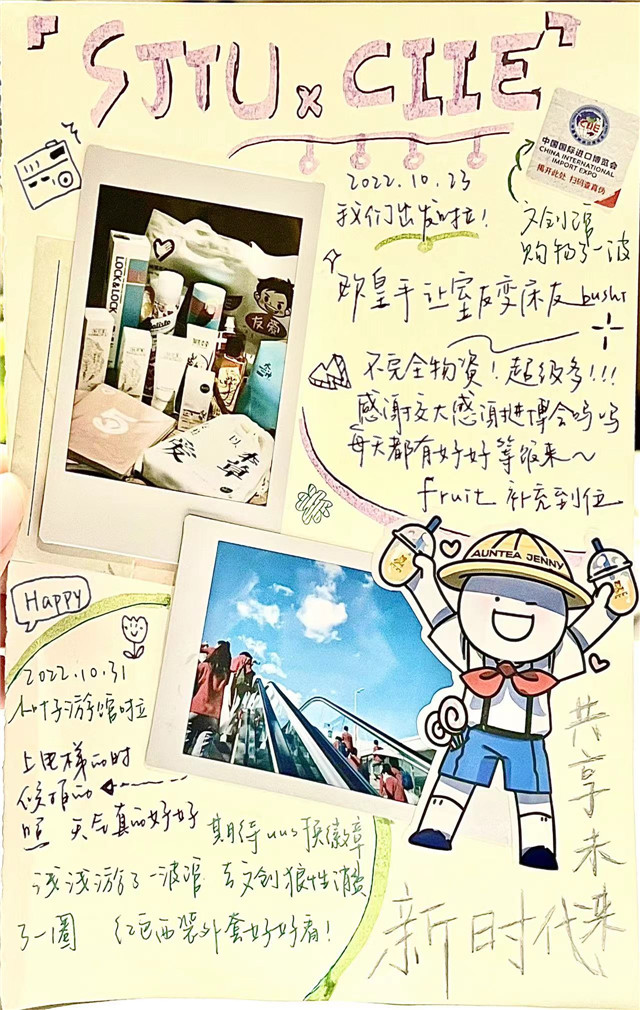 『SJTU x CIIE』
CIIE
中国国际进口博览会
CHINA INTERNATIONAL
IMPORT EXPO
揭开此处 扫码查真伪
2022.10.23
我们出发啦!
文创馆
购物了一波
欧皇手让室友变床友 bushi
不完全物资!超级多!!!
感谢交大感谢进博会呜呜
每天都有好好等饭来~
fruit 补充到位
LOCK&LOCK
友爱
AUNTEA JENNY
Happy
2022.10.31
小叶子游馆啦
上电梯的时
候拍的
照 天气真的好好
期待uus换徽章
浅浅游了一波馆 去文创狼性消费
了一圈 红色西装外套好好看!
共享未来
新时代